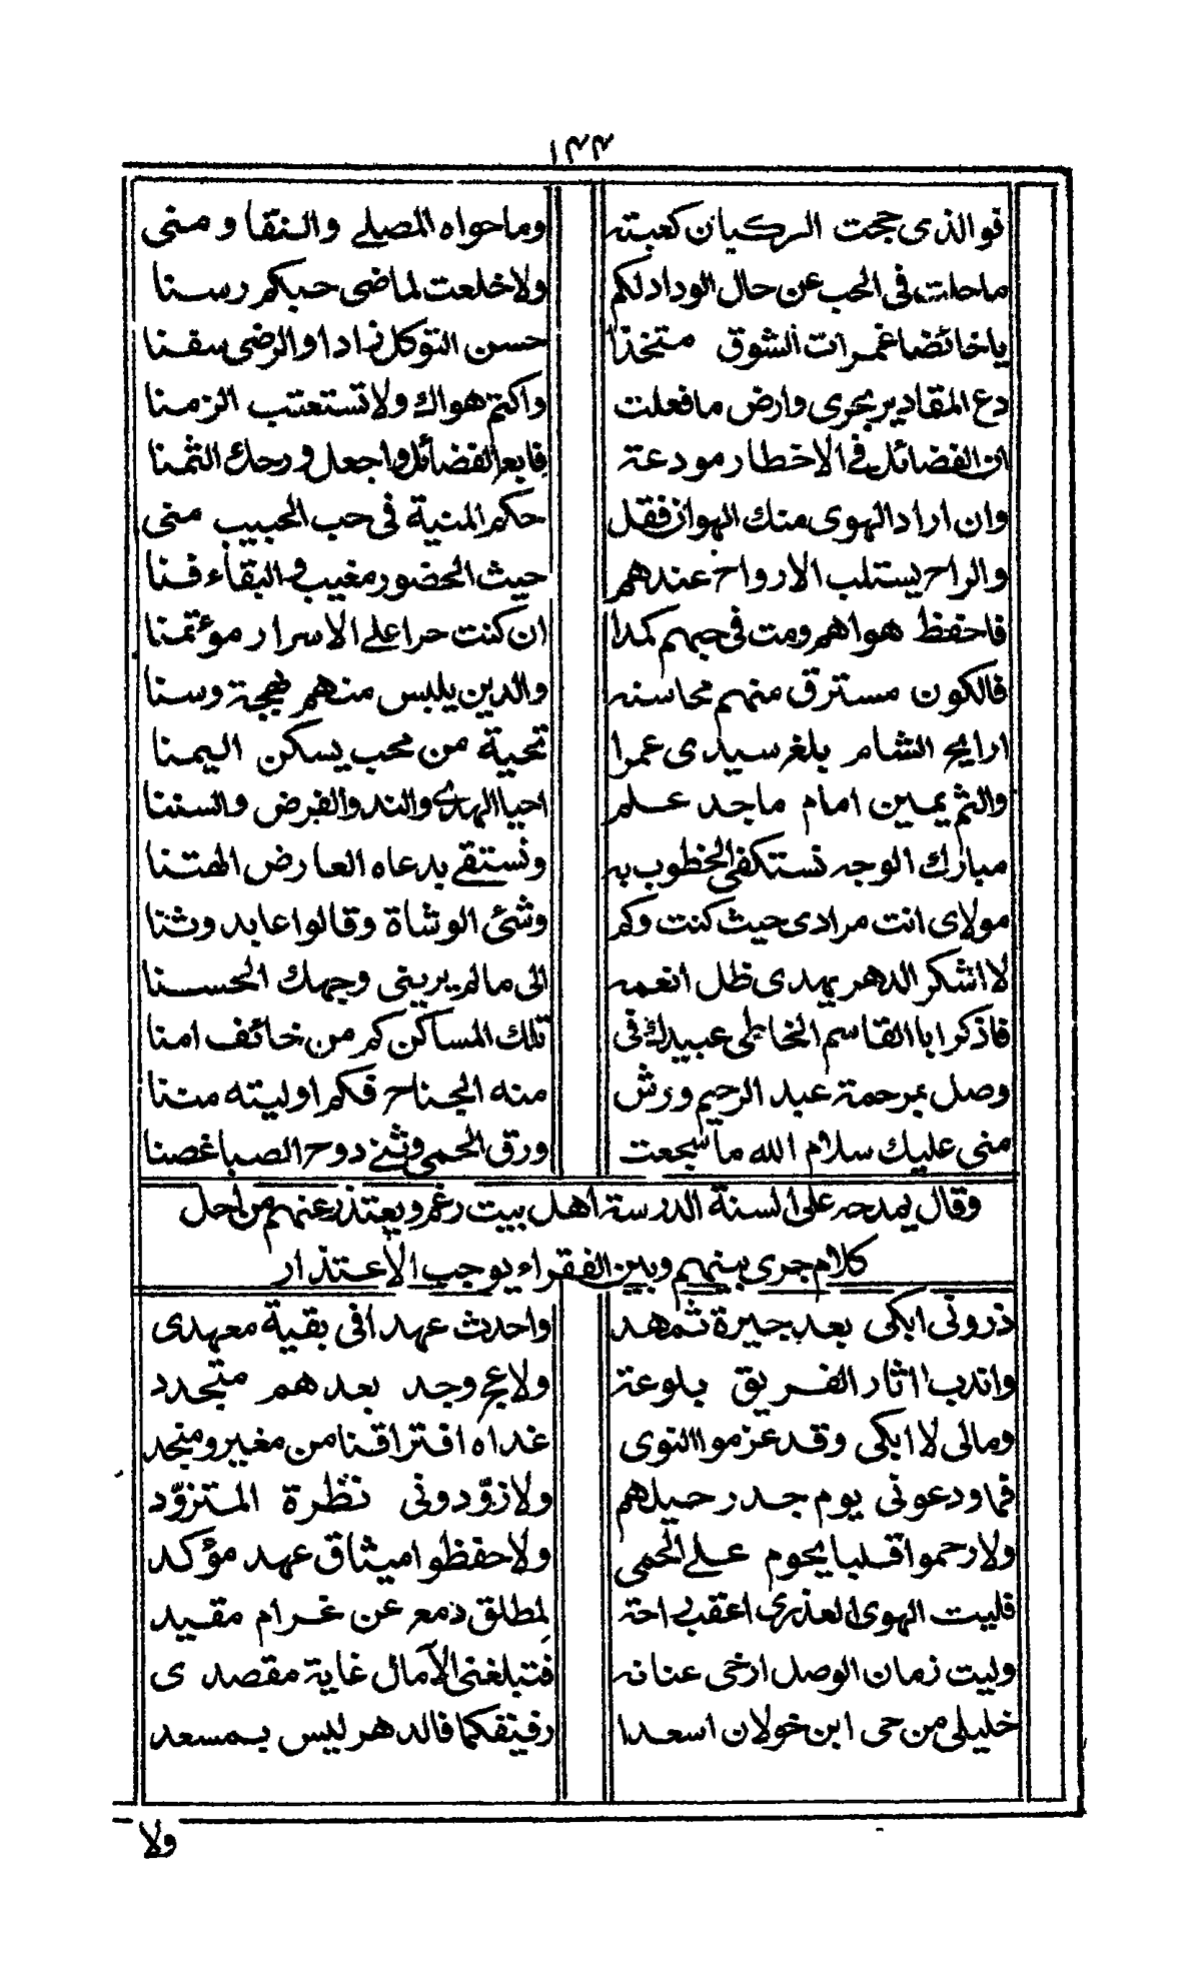 ١٣٣
فوالذى حجت الركبان كعبته وما حواه المصلى والنقا ومنى
ما حلت فى الحب عن حال الوداد لكم ولا خلعت لماضى حبكم رسنا
يا خائضا غمرات الشوق متخذا حسن التوكل زادا والرضى سفنا
دع المقادير تجرى وارض ما فعلت واكتم هواك ولا تستعتب الزمنا
ان الفضائل فى الاخطار مودعة فابع الفضائل واجعل روحك الثمنا
وان اراد الهوى منك الهوان فقل حكم المنية فى حب الحبيب منى
والراح يستلب الارواح عندهم حيث الحضور مغيب والبقاء فنا
فاحفظ هواهم ومت فى حبهم كمدا ان كنت حرا على الاسرار مؤتمنا
فالكون مسترق منهم محاسنه والدين يلبس منهم بهجة وسنا
ارايح الشام بلغ سيدى عمرا تحية من محب يسكن اليمنا
والثم يمين امام ماجد علم احيا الهدى والندى والفرض والسننا
مبارك الوجه نستكفى الخطوب به ونستقى بدعاه العارض الهتنا
مولاى انت مرادى حيث كنت وكم وشى الوشاة وقالوا عابد وثنا
لا اشكر الدهر يهدى ظل انعمه الى ما لم يرينى وجهك الحسنا
فاذكر ابا القاسم الخاطى عبيدك فى تلك المساكن كم من خائف امنا
وصل بمرحمة عبد الرحيم ورش منه الجناح فكم اوليته مننا
منى عليك سلام الله ما سجعت ورق الحمى وثنى دوح الصبا غصنا
وقال يمدحه على السنة الدرسة اهل بيت رغم ويعتذر عنهم من اجل
كلام جرى بينهم وبين الفقراء يوجب الأعتذار
ذرونى ابكى بعد جيرة ثمهد واحدث عهدا فى بقية معهدى
واندب اثار الفريق بلوعة ولاعج وجد بعدهم متجدد
ومالى لا ابكى وقد عزموا النوى غداه افتراقنا من مغير ومنجد
فما ودعونى يوم جد رحيلهم ولا زوّدونى نظرة المتزوّد
ولا رحموا قلبا يحوم على الحمى ولا حفظوا ميثاق عهد مؤكد
فليت الهوى العذرى اعقب راحة لمطلق دمع عن غرام مقيد
وليت زمان الوصل ارخى عنانه فتبلغنى الآمال غاية مقصدى
خليلى من حى ابن خولان اسعدا رفيقكما فالدهر ليس بمسعد
ولا